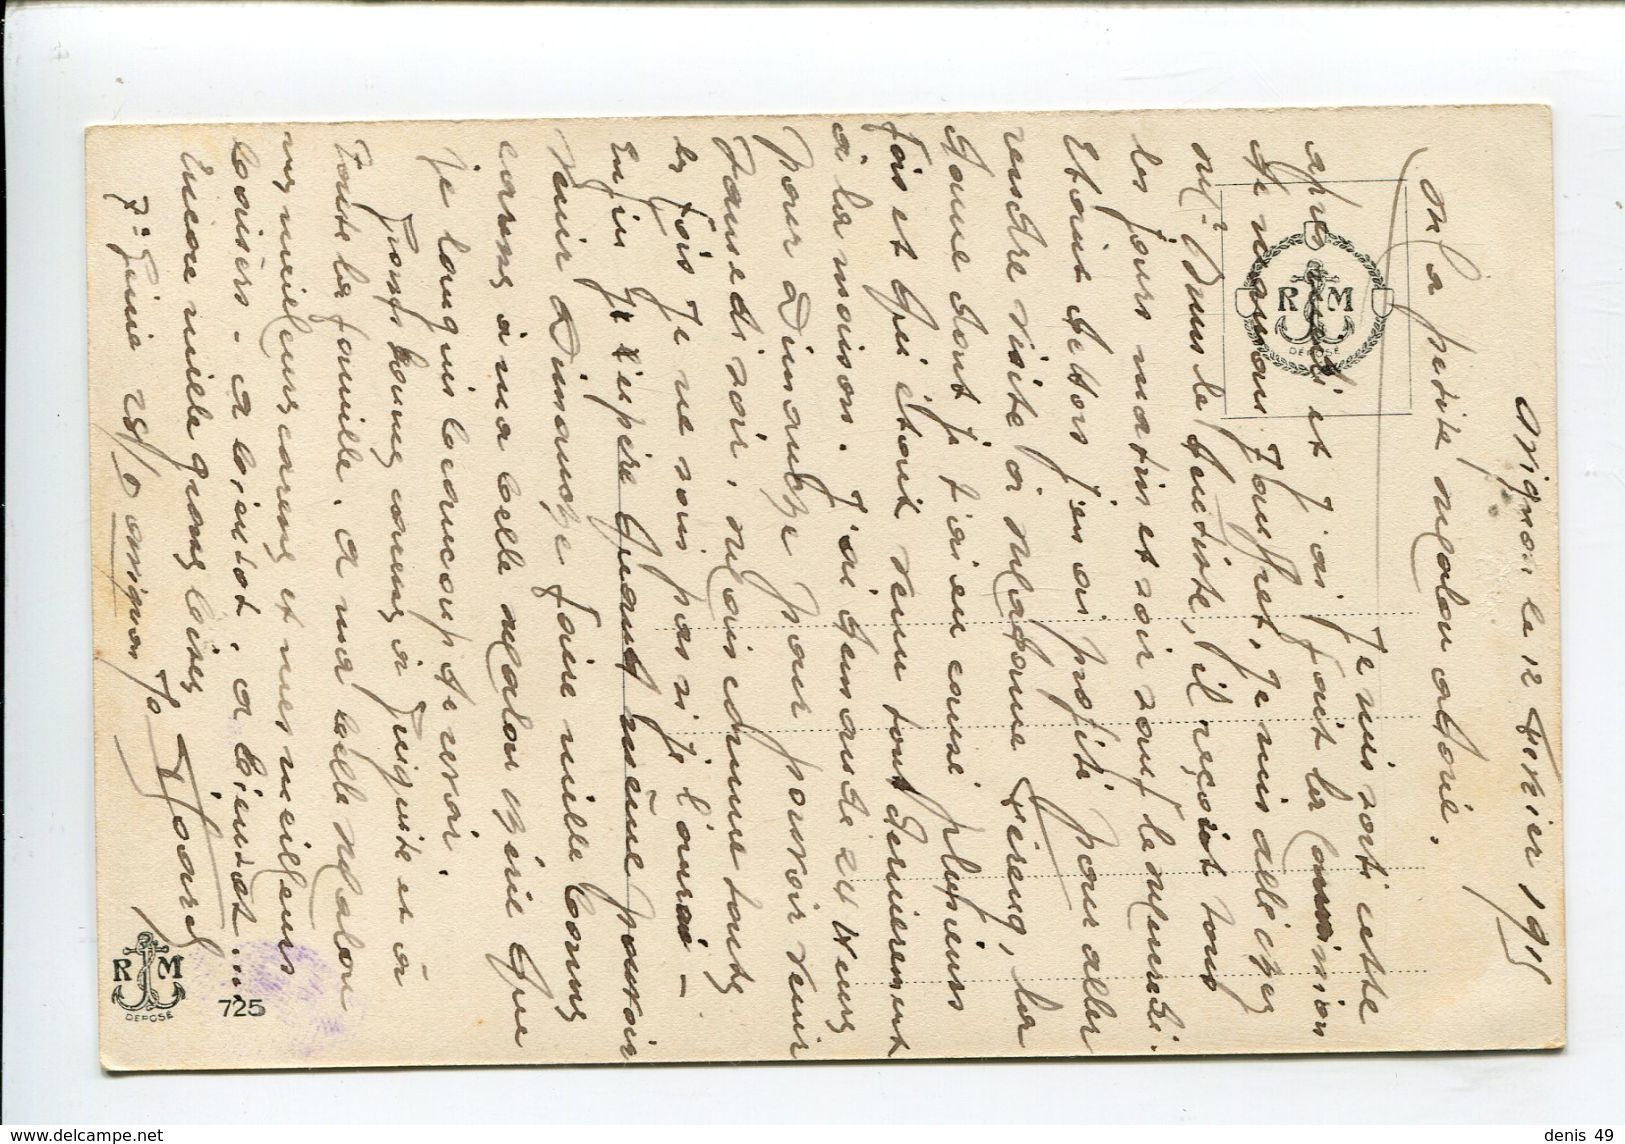 Avignon le 12 Février 1915
Ma petite Malou adorée.
Je suis sorti cette
après midi et j'ai fait la commission
de maman Jouffret. Je suis allé chez
Mr. Brun le dentiste, il reçoit tous
les jours matin et soir sauf le Mercredi.
Etant dehors j'en ai profité pour aller
rendre visite à Madame, la
dame dont je t'ai causé plusieurs
fois et qui était venu tout dernierement
à la maison. J'ai demandé 24 heures
pour Dimanche pour pouvoir venir
Samedi soir. Mais comme toutes
les fois je ne sais pas si je l'aurai -
Enfin j'espère quand même pouvoir
venir Dimanche faire mille bonnes
caresses à ma belle Malou chérie que
je languis beaucoup de revoir.
Gros bonnes caresses à et à
toute la famille. A ma belle Malou
mes meilleures caresses et mes meilleurs
baisers - A bientot, a bientot...
Encore mille gros baisers
7e Génie 28/0 Avignon
R M
DÉPOSÉ
R M
DÉPOSÉ
725
denis 49